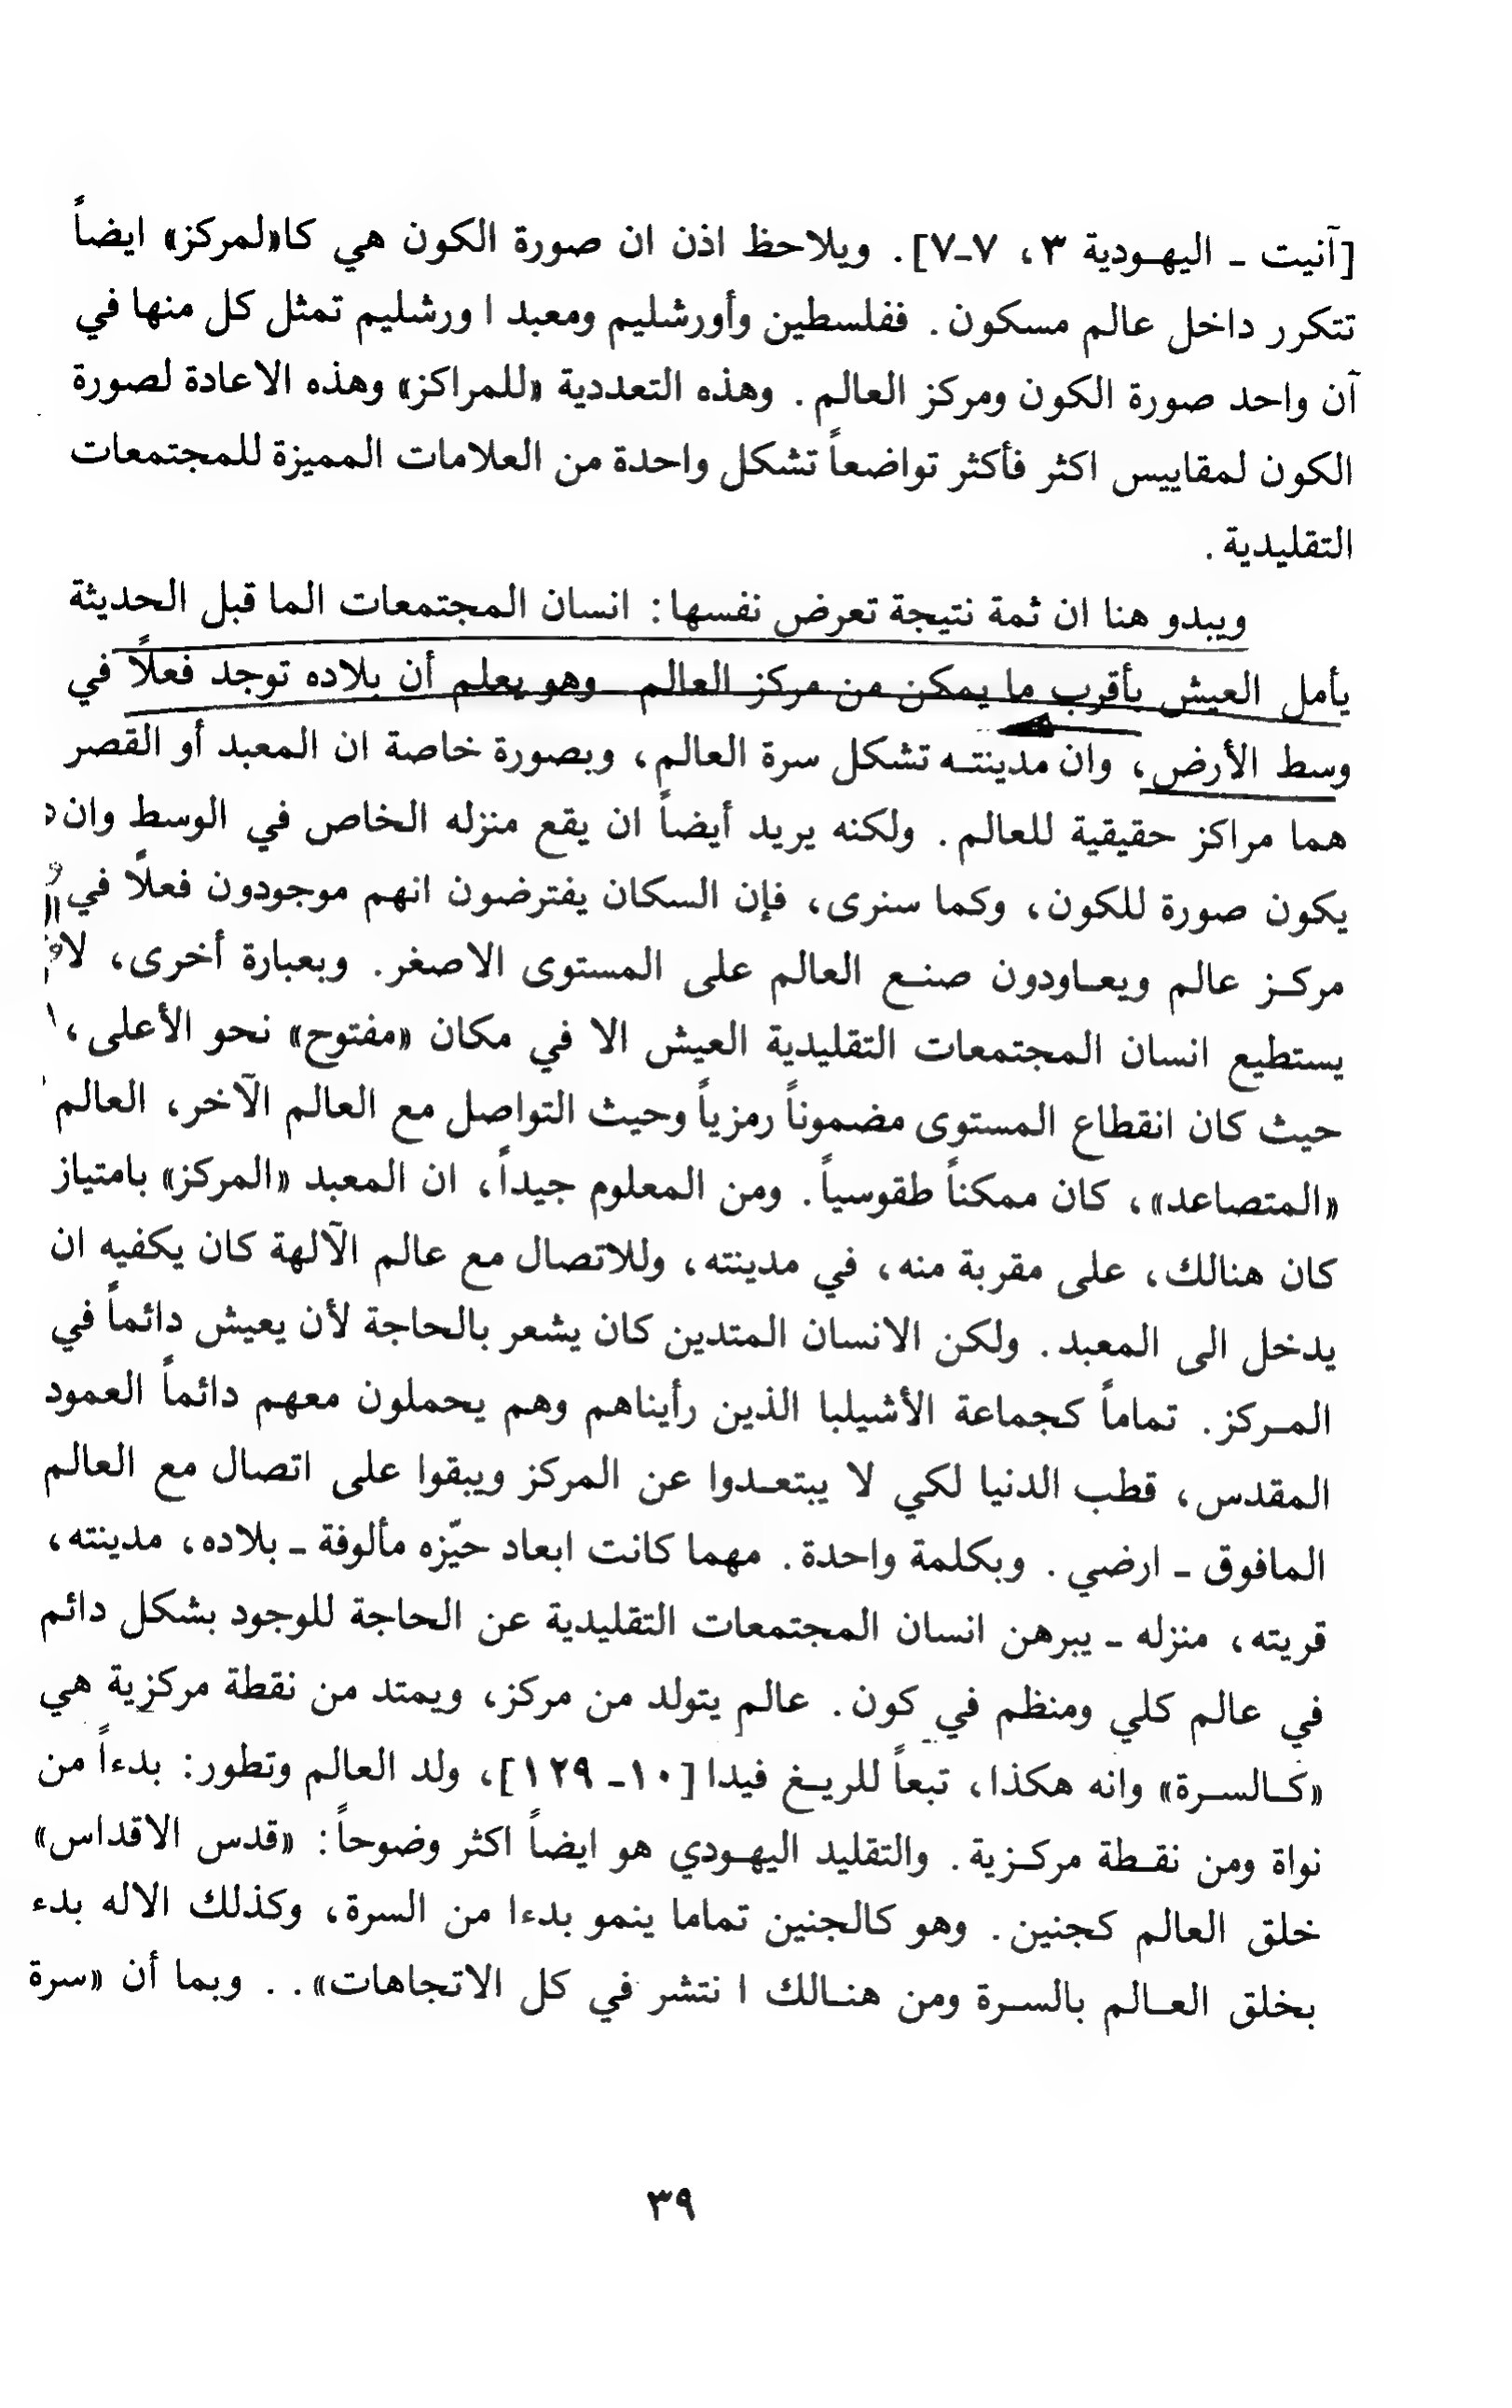 [آنيت ـ اليهودية ٣، ٧ـ٧]. ويلاحظ اذن ان صورة الكون هي كا«لمركز» ايضاً
تتكرر داخل عالم مسكون. ففلسطين وأورشليم ومعبد ا ورشليم تمثل كل منها في
آن واحد صورة الكون ومركز العالم. وهذه التعددية «للمراكز» وهذه الاعادة لصورة
الكون لمقاييس اكثر فأكثر تواضعاً تشكل واحدة من العلامات المميزة للمجتمعات
التقليدية.
ويبدو هنا ان ثمة نتيجة تعرض نفسها: انسان المجتمعات الما قبل الحديثة
يأمل العيش بأقرب ما يمكن من مركز العالم وهو يعلم أن بلاده توجد فعلاً في
وسط الأرض، وان مدينته تشكل سرة العالم، وبصورة خاصة ان المعبد أو القصر
هما مراكز حقيقية للعالم. ولكنه يريد أيضاً ان يقع منزله الخاص في الوسط وان
يكون صورة للكون، وكما سنرى، فإن السكان يفترضون انهم موجودون فعلاً في
مركز عالم ويعاودون صنع العالم على المستوى الاصغر. وبعبارة أخرى، لا
يستطيع انسان المجتمعات التقليدية العيش الا في مكان «مفتوح» نحو الأعلى،
حيث كان انقطاع المستوى مضموناً رمزياً وحيث التواصل مع العالم الآخر، العالم
«المتصاعد»، كان ممكناً طقوسياً. ومن المعلوم جيداً، ان المعبد «المركز» بامتياز
كان هنالك، على مقربة منه، في مدينته، وللاتصال مع عالم الآلهة كان يكفيه ان
يدخل الى المعبد. ولكن الانسان المتدين كان يشعر بالحاجة لأن يعيش دائماً في
المركز. تماماً كجماعة الأشيلبا الذين رأيناهم وهم يحملون معهم دائماً العمود
المقدس، قطب الدنيا لكي لا يبتعدوا عن المركز ويبقوا على اتصال مع العالم
المافوق ـ ارضي. وبكلمة واحدة. مهما كانت ابعاد حيّزه مألوفة ـ بلاده، مدينته،
قريته، منزله ـ يبرهن انسان المجتمعات التقليدية عن الحاجة للوجود بشكل دائم
في عالم كلي ومنظم في كون. عالم يتولد من مركز، ويمتد من نقطة مركزية هي
«كالسرة» وانه هكذا، تبعاً للريغ فيدا [١٠ـ ١٢٩]، ولد العالم وتطور: بدءاً من
نواة ومن نقطة مركزية. والتقليد اليهودي هو ايضاً اكثر وضوحاً: «قدس الاقداس»
خلق العالم كجنين. وهو كالجنين تماما ينمو بدءا من السرة، وكذلك الاله بدء
بخلق العالم بالسرة ومن هنالك ا نتشر في كل الاتجاهات».. وبما أن «سرة
٣٩